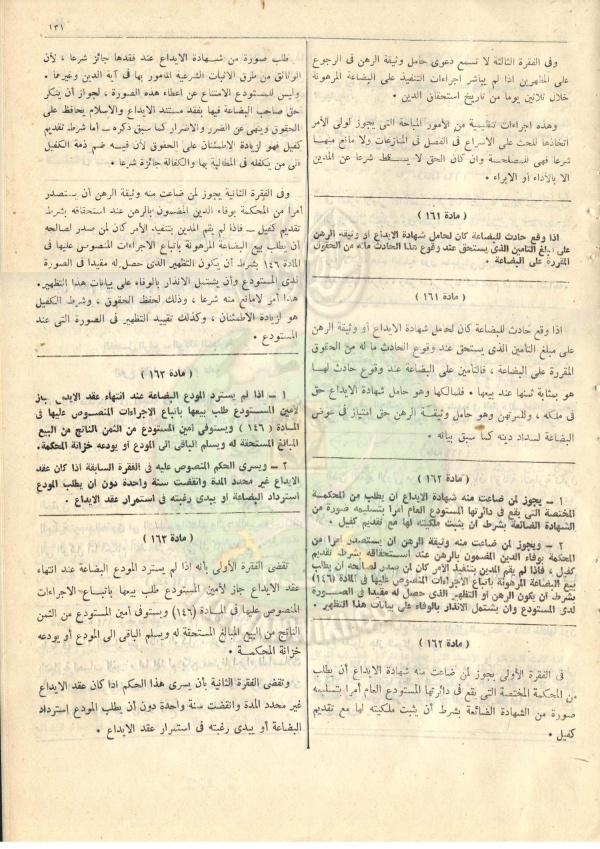 ١٣١
وفى الفقرة الثالثة لا تسمع دعوى حامل وثيقة الرهن فى الرجوع
على المظهرين اذا لم يباشر اجراءات التنفيذ على البضاعة المرهونة
خلال ثلاثين يوما من تاريخ استحقاق الدين .
وهذه اجراءات تنظيمية من الأمور المباحة التى يجوز لولى الأمر
اتخاذها للحث على الاسراع فى الفصل فى المنازعات ولا مانع منهـا
شرعا فهى للمصلحـة وان كان الحق لا يسـقط شرعا عن المدين
الا بالأداء أو الابراء .
( مادة ١٦١ )
اذا وقع حادث للبضاعة كان لحامل شهادة الايداع أو وثيقة الرهن
على مبلغ التأمين الذى يستحق عند وقوع هذا الحادث ما له من الحقوق
المقررة على البضاعة .
( مادة ١٦١ )
اذا وقع حادث للبضاعة كان لحامل شهادة الايداع أو وثيقة الرهن
على مبلغ التأمين الذى يستحق عند وقوع الحادث ما له من الحقوق
المقررة على البضاعة ، فالتأمين على البضاعة عند وقوع حادث لهـا
هو بمثابة ثمنها عند بيعها . فلمالكها وهو حامل شهادة الايداع حق
فى ملكه ، وللمرتهن وهو حامل وثيقـة الرهن حق امتياز فى عوض
البضاعة لسداد دينه كما سبق بيانه .
( مادة ١٦٢ )
١ – يجوز لمن ضاعت منه شهادة الايداع أن يطلب من المحكمـة
المختصة التى يقع فى دائرتها المستودع العام أمرا بتسليمه صورة من
الشهادة الضائعة بشرط أن يثبت ملكيته لها مع تقديم كفيل .
٢ – ويجوز لمن ضاعت منه وثيقة الرهن أن يستصدر أمرا من
المحكمة بوفاء الدين المضمون بالرهن عند استحقاقه بشرط تقديم
كفيل ، فاذا لم يقم المدين بتنفيذ الأمر كان لمن صدر لصالحه أن يطلب
بيع البضاعة المرهونة باتباع الاجراءات المنصوص عليها فى المادة (١٤٦)
بشرط أن يكون الرهن أو التظهير الذى حصل له مقيدا فى الصـورة
لدى المستودع وان يشتمل الانذار بالوفاء على بيانات هذا التظهير .
( مادة ١٦٢ )
فى الفقرة الأولى يجوز لمن ضاعت منه شهادة الايداع أن يطلب
من المحكمة المختصة التى يقع فى دائرتها المستودع العام أمرا بتسليمه
صورة من الشهادة الضائعة بشرط أن يثبت ملكيته لها مع تقديم
كفيل .
طلب صورة من شهـادة الايداع عند فقدها جائز شرعا ، لأن
الوثائق من طرق الاثبات الشرعية المأمور بها فى آية الدين وغيرها .
وليس للمستودع الامتناع عن اعطاء هذه الصورة ، لجواز أن ينكر
حق صاحب البضاعة فيها بفقد مستند الايداع والاسلام يحافظ على
الحقوق وينهى عن الضرر والاضرار كما سبق ذكره – أما شرط تقديم
كفيل فهو لزيادة الاطمئنان على الحقوق لأن فيـه ضم ذمة الكفيل
الى من يكفله فى المطالبة بها والكفالة جائزة شرعا .
وفى الفقرة الثانية يجوز لمن ضاعت منه وثيقة الرهن أن يستصدر
أمرا من المحكمة بوفاء الدين المضمون بالرهن عند استحقاقه بشرط
تقديم كفيل – فاذا لم يقم المدين بتنفيذ الأمر كان لمن صدر لصالحه
أن يطلب بيع البضاعة المرهونة باتباع الاجراءات المنصوص عليها فى
المادة ١٤٦ بشرط أن يكون التظهير الذى حصل له مقيدا فى الصورة
لدى المستودع وأن يشتمل الانذار بالوفاء على بيانات هذا التظهير .
هذا أمر لامانع منه شرعا ، وذلك لحفظ الحقوق ، وشرط الكفيل
هو لزيادة الاطمئنان ، وكذلك تقييد التظهير فى الصورة التى عند
المستودع .
( مادة ١٦٣ )
١ – اذا لم يسترد المودع البضاعة عند انتهاء عقد الايداع جاز
لأمين المستودع طلب بيعها باتباع الاجراءات المنصوص عليها فى
المـادة ( ١٤٦ ) ويستوفى أمين المستودع من الثمن الناتج من البيع
المبالغ المستحقة له ويسلم الباقى الى المودع أو يودعه خزانة المحكمة.
٢ – ويسرى الحكم المنصوص عليه فى الفقرة السابقة اذا كان عقد
الايداع غير محدد المدة وانقضت سنة واحدة دون أن يطلب المودع
استرداد البضاعة أو يبدى رغبته فى استمرار عقد الايداع .
( مادة ١٦٣ )
تقضى الفقرة الأولى بأنه اذا لم يسترد المودع البضاعة عند انتهاء
عقد الايداع جاز لأمين المستودع طلب بيعها باتبـاع الاجراءات
المنصوص عليها فى المـادة (١٤٦) ويستوفى أمين المستودع من الثمن
الناتج من البيع المبالغ المستحقة له ويسلم الباقى الى المودع أو يودعه
خزانة المحكمـة .
وتقضى الفقرة الثانية بأن يسرى هذا الحكم اذا كان عقد الايداع
غير محدد المدة وانقضت سنة واحدة دون أن يطلب المودع استرداد
البضاعة أو يبدى رغبته فى استمرار عقد الايداع .